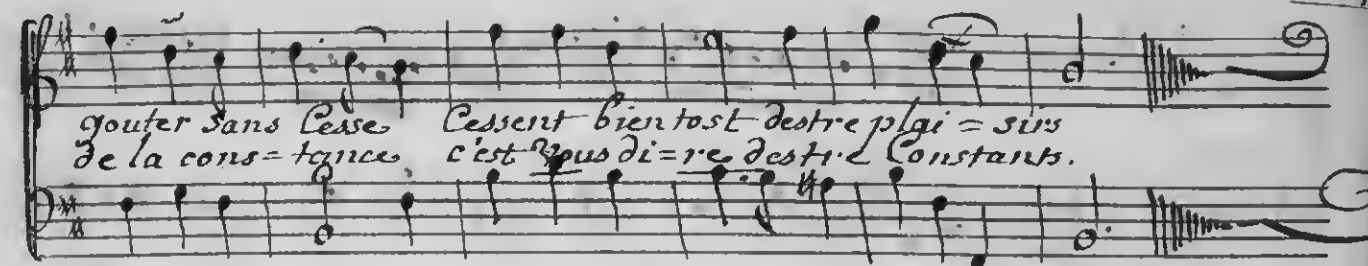 gouter sans Cesse Cessent bientost destre plai = sirs
de la cons = tance c'est vous di = re destre Constants.